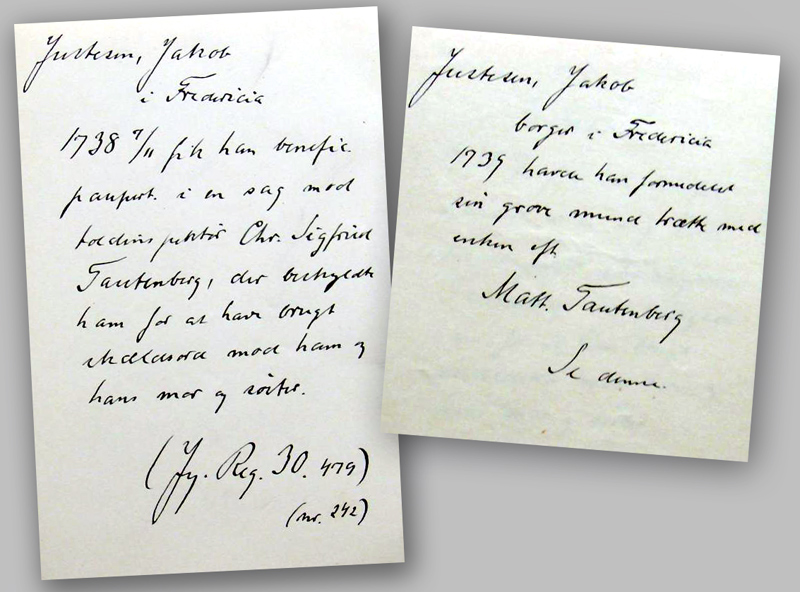 Justesen, Jakob
i Fredericia
1738 7/11 fik han benefic.
paupert. i en sag mod
toldinspektör Chr. Sigfried
Tautenberg, der beskyldte
ham for at have brugt
skældsord mod ham og
hans mor og söster.
(Jy. Reg. 30. 479)
(nr. 242)
Justesen, Jakob
borger i Fredericia
1739 havde han formedelst
sin grove mund trætte med
enken eft.
Matt. Tautenberg
Se denne.